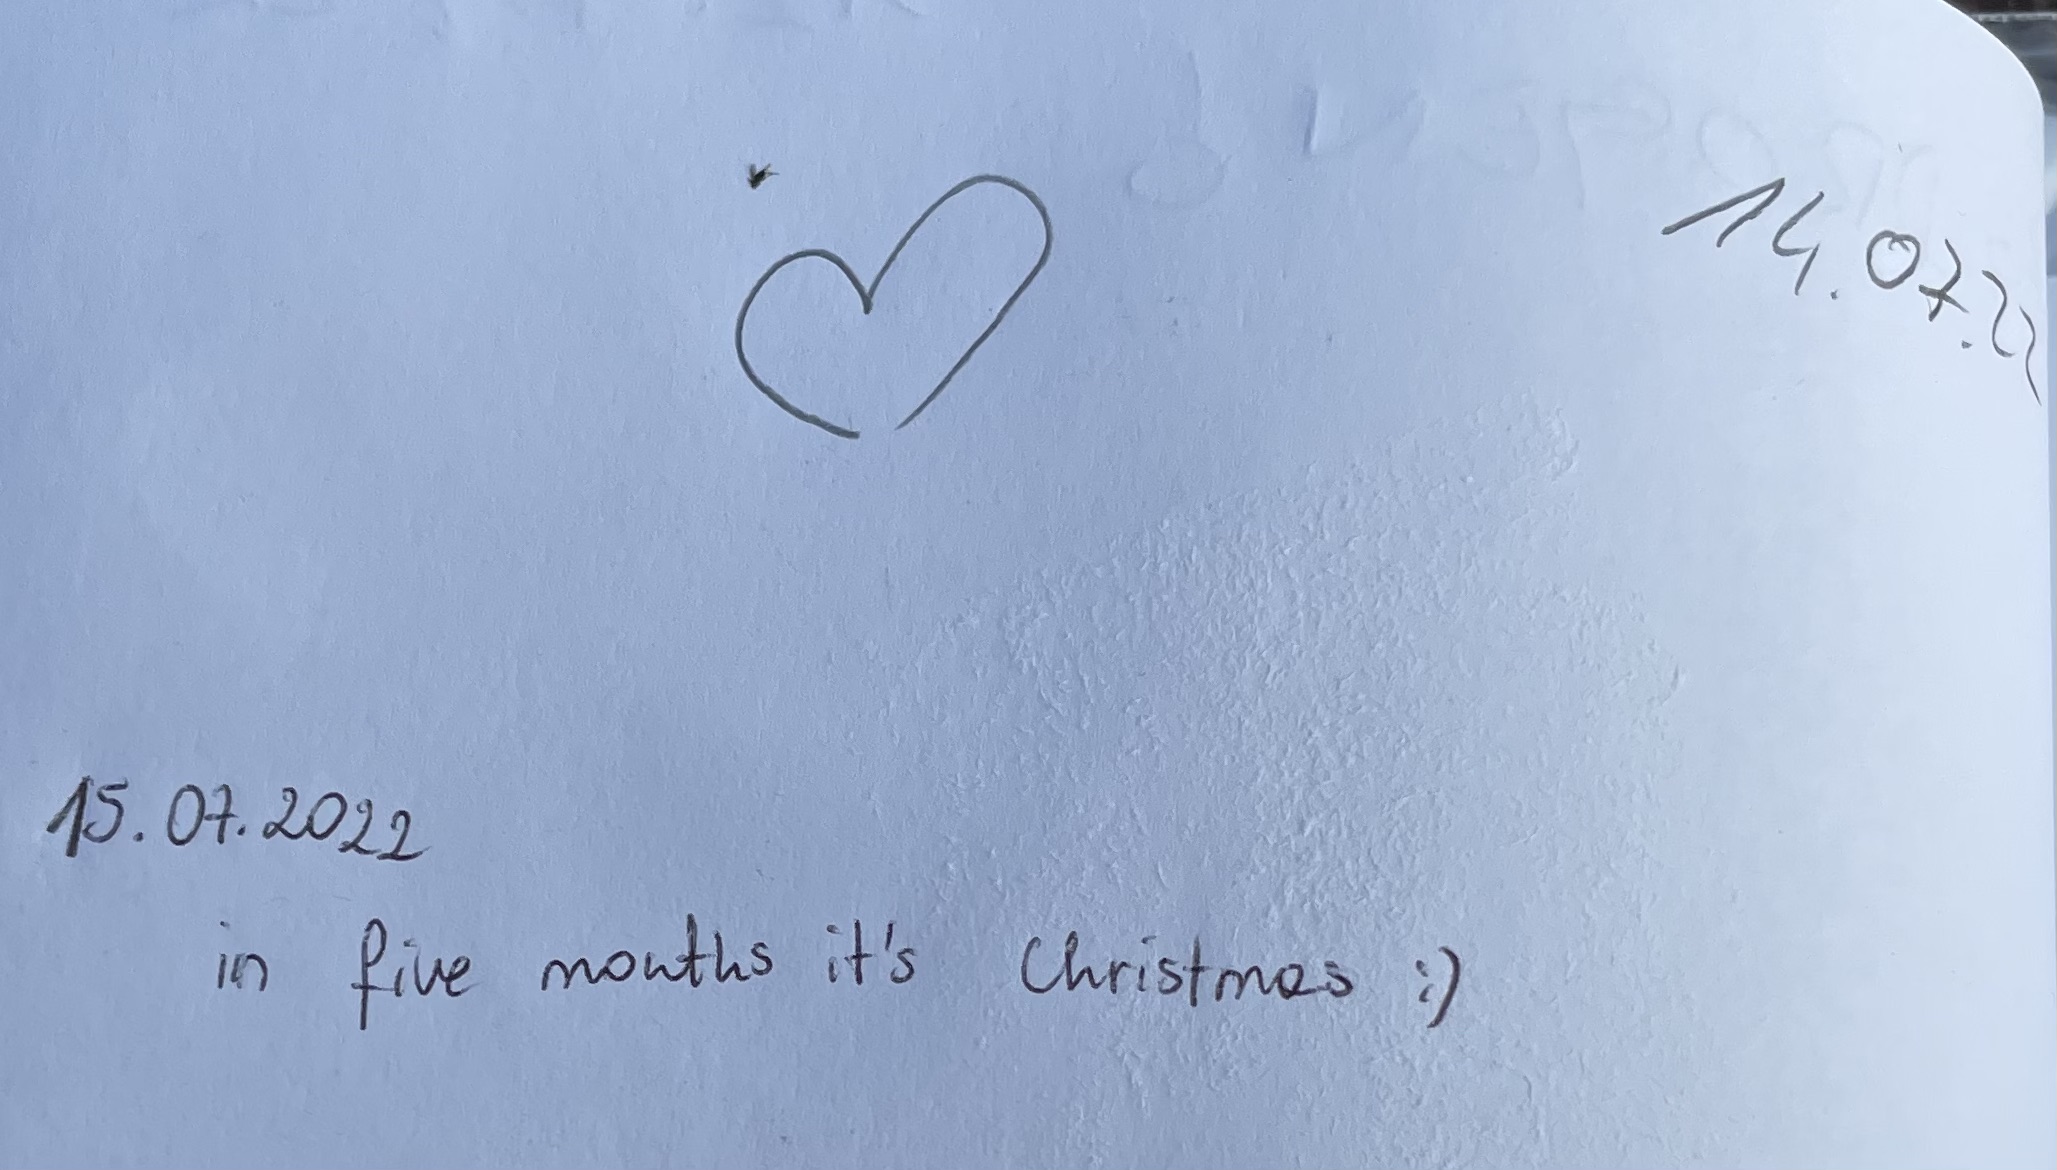 14.07.22
15.07.2022
in five months it's Christmas :)